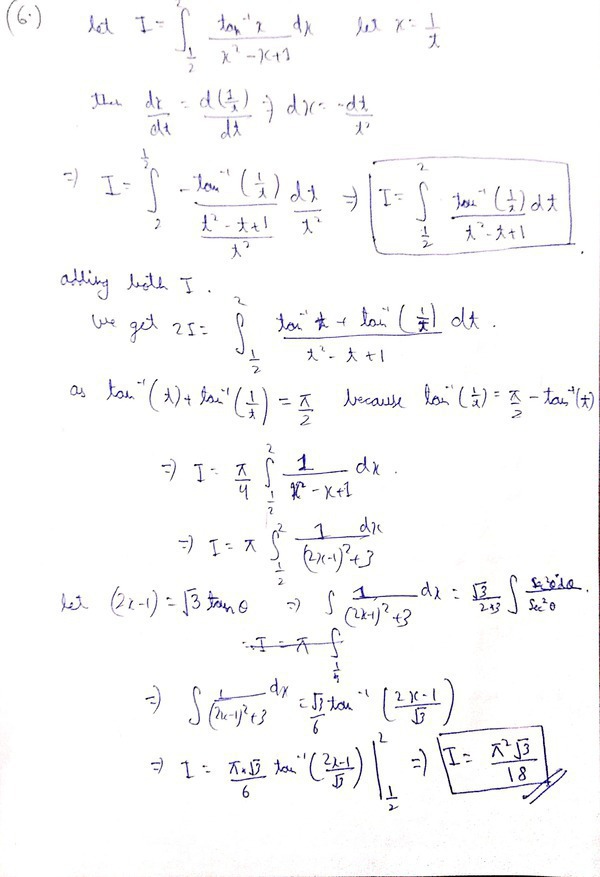 (6.) let I = ∫_{1/2}^{2} tan⁻¹x / (x² - x + 1) dx let x = 1/t
then dx/dt = d(1/t)/dt ⇒ dx = -dt/t²
⇒ I = ∫_{2}^{1/2} -tan⁻¹(1/t) / ((t² - t + 1)/t²) dt/t² ⇒ I = ∫_{1/2}^{2} tan⁻¹(1/t) dt / (t² - t + 1) .
adding both I .
We get 2I = ∫_{1/2}^{2} (tan⁻¹ t + tan⁻¹(1/t)) / (t² - t + 1) dt .
as tan⁻¹(t) + tan⁻¹(1/t) = π/2 because tan⁻¹(1/t) = π/2 - tan⁻¹(t)
⇒ I = π/4 ∫_{1/2}^{2} 1 / (x² - x + 1) dx .
⇒ I = π ∫_{1/2}^{2} 1 / ((2x-1)² + 3) dx
let (2x-1) = √3 tanθ ⇒ ∫ 1 / ((2x-1)² + 3) dx = √3/(2×3) ∫ sec²θ dθ / sec²θ .
I = π ∫
⇒ ∫ 1 / ((2x-1)² + 3) dx = √3/6 tan⁻¹((2x-1)/√3)
⇒ I = π×√3/6 tan⁻¹((2x-1)/√3) |_{1/2}^{2} ⇒ I = π²√3/18